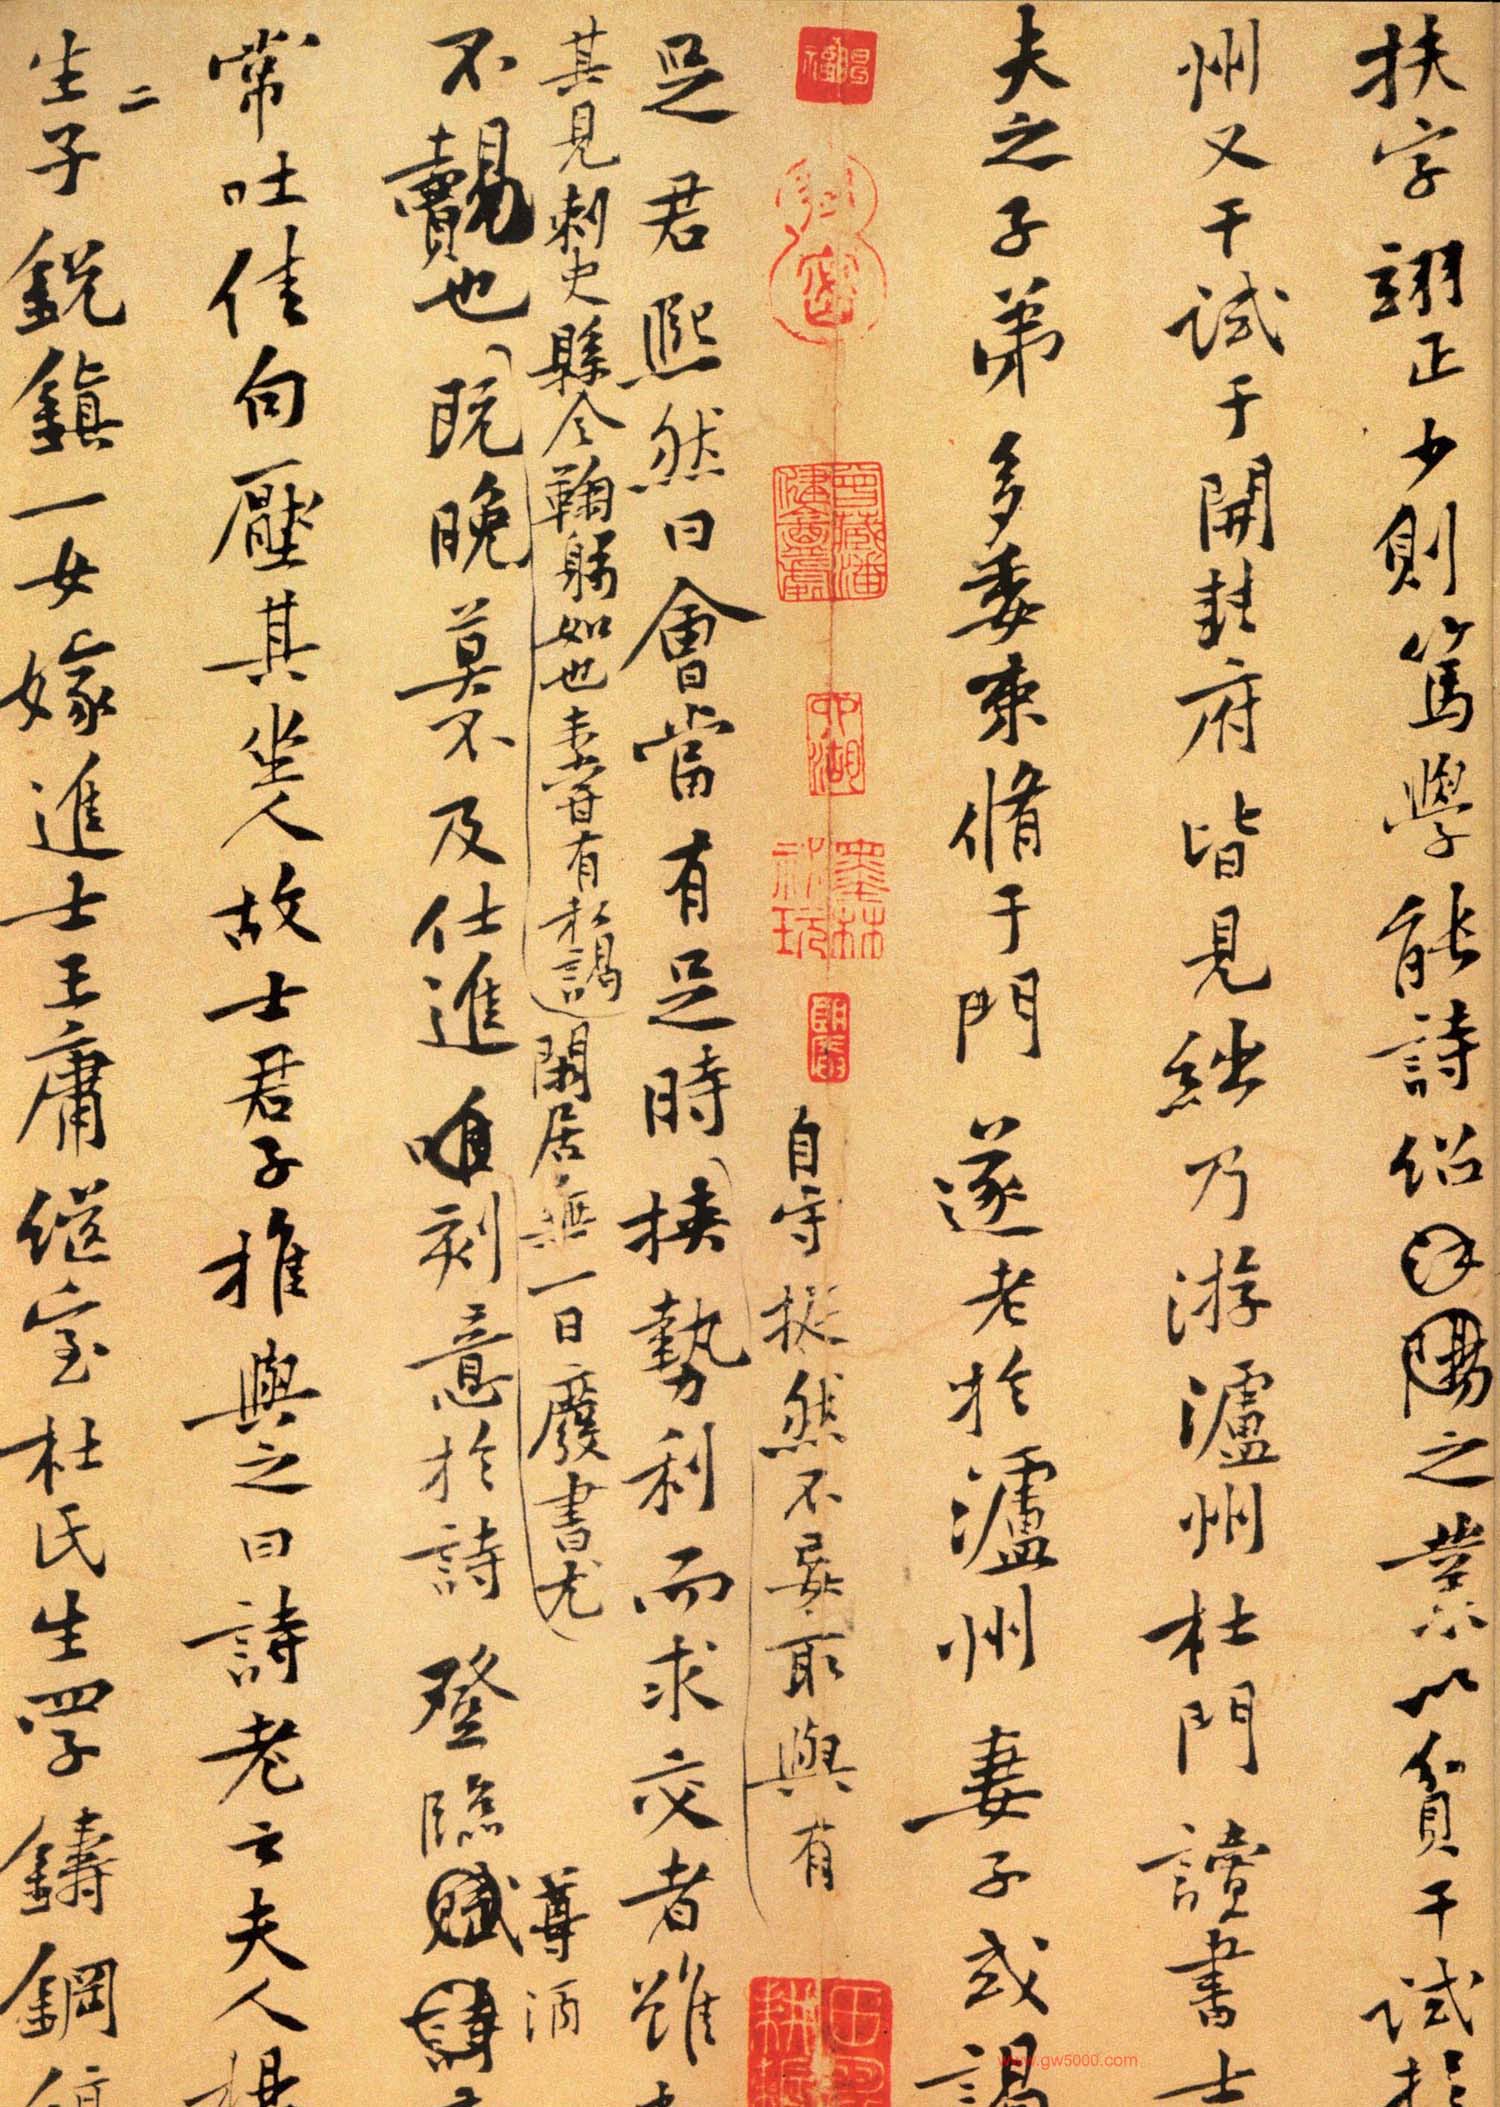 扶字翊正少則篤學能詩紹之業以貧干試於
州又干試于開封府皆見絀乃游瀘州杜門讀書士
夫之子弟多委束脩于門遂老於瀘州妻子或謁
自守挺然不妄取與有
足君熙然曰會當有足時挾勢利而求交者雖
其見刺史縣令鞠躬如也未嘗有私謁閑居無一日廢書尤
尊酒
不覿也既晚莫不及仕進刻意於詩登臨賦詩
常吐佳句壓其坐人故士君子推與之曰詩老云夫人楊
二
生子銳鎮一女嫁進士王庸继室杜氏生四子鑄鋼
www.gw5000.com